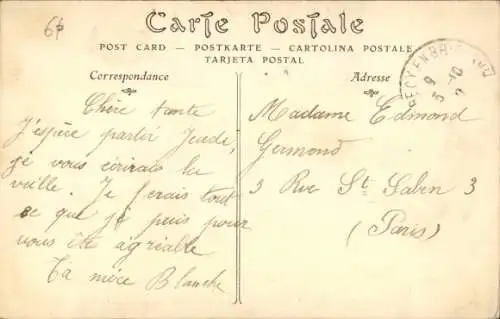 6f
Carte Postale
POST CARD — POSTKARTE — CARTOLINA POSTALE
TARJETA POSTAL
Correspondance
Chère tante
J'espère partir Jeudi,
je vous écrirais la
veille. Je ferais tout
ce que je puis pour
vous être agréable
Ta nièce Blanche
Adresse
Madame Edmond
Germond
3 Rue St Sabin 3
(Paris)